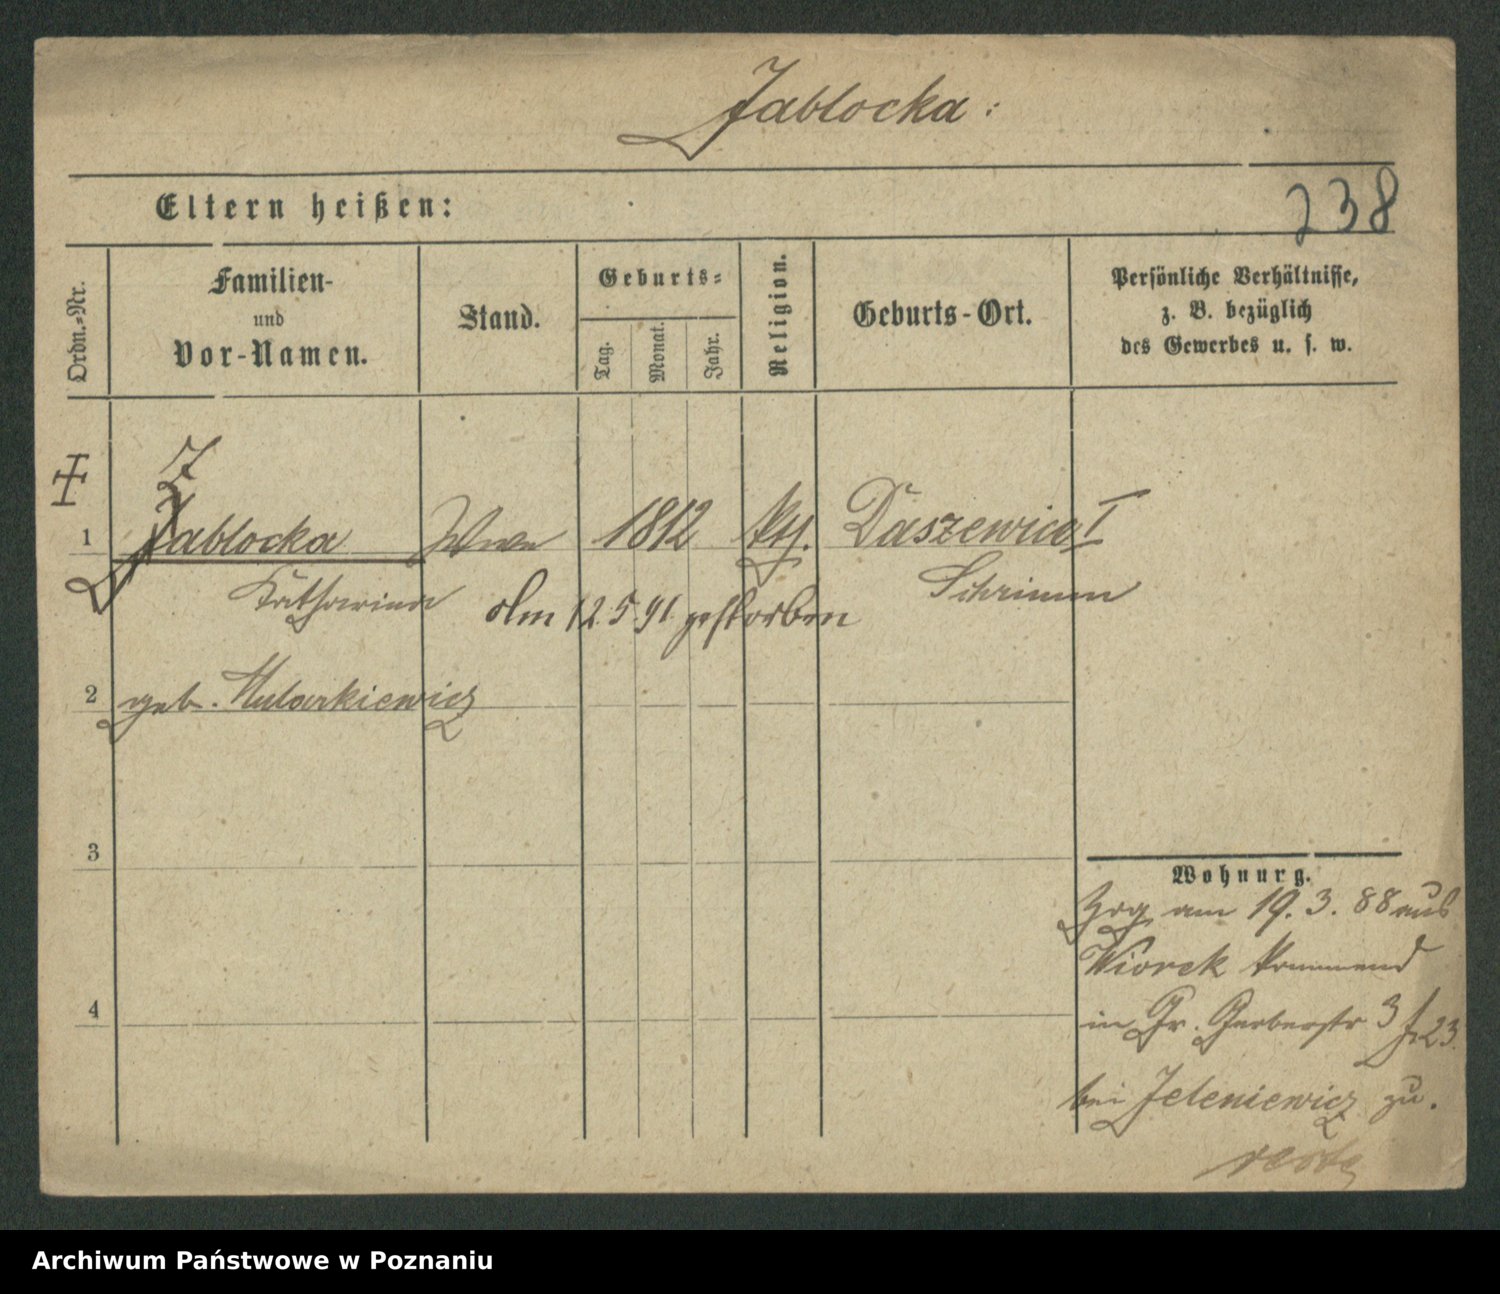 Jablocka:
Eltern heißen:
238
Ordn.-Nr.
Familien-
und
Vor-Namen.
Stand.
Geburts-
Tag.
Monat.
Jahr.
Religion.
Geburts-Ort.
Persönliche Verhältnisse,
z. B. bezüglich
des Gewerbes u. s. w.
J
1 Jablocka Wwe 1812 kth. Daszewice I
Katharina Schrimm
Am 12.5.91. gestorben
2 geb. Mularkiewicz
3
4
Wohnung.
Zog am 19. 3. 88 aus
Wiorek kommend
in Gr. Gerberstr 3 f. 23.
bei Jeleniewicz zu.
Archiwum Państwowe w Poznaniu